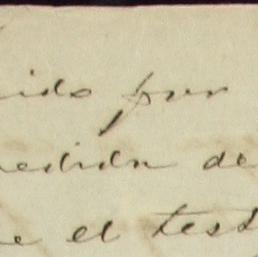 ido por
edida de
e el test